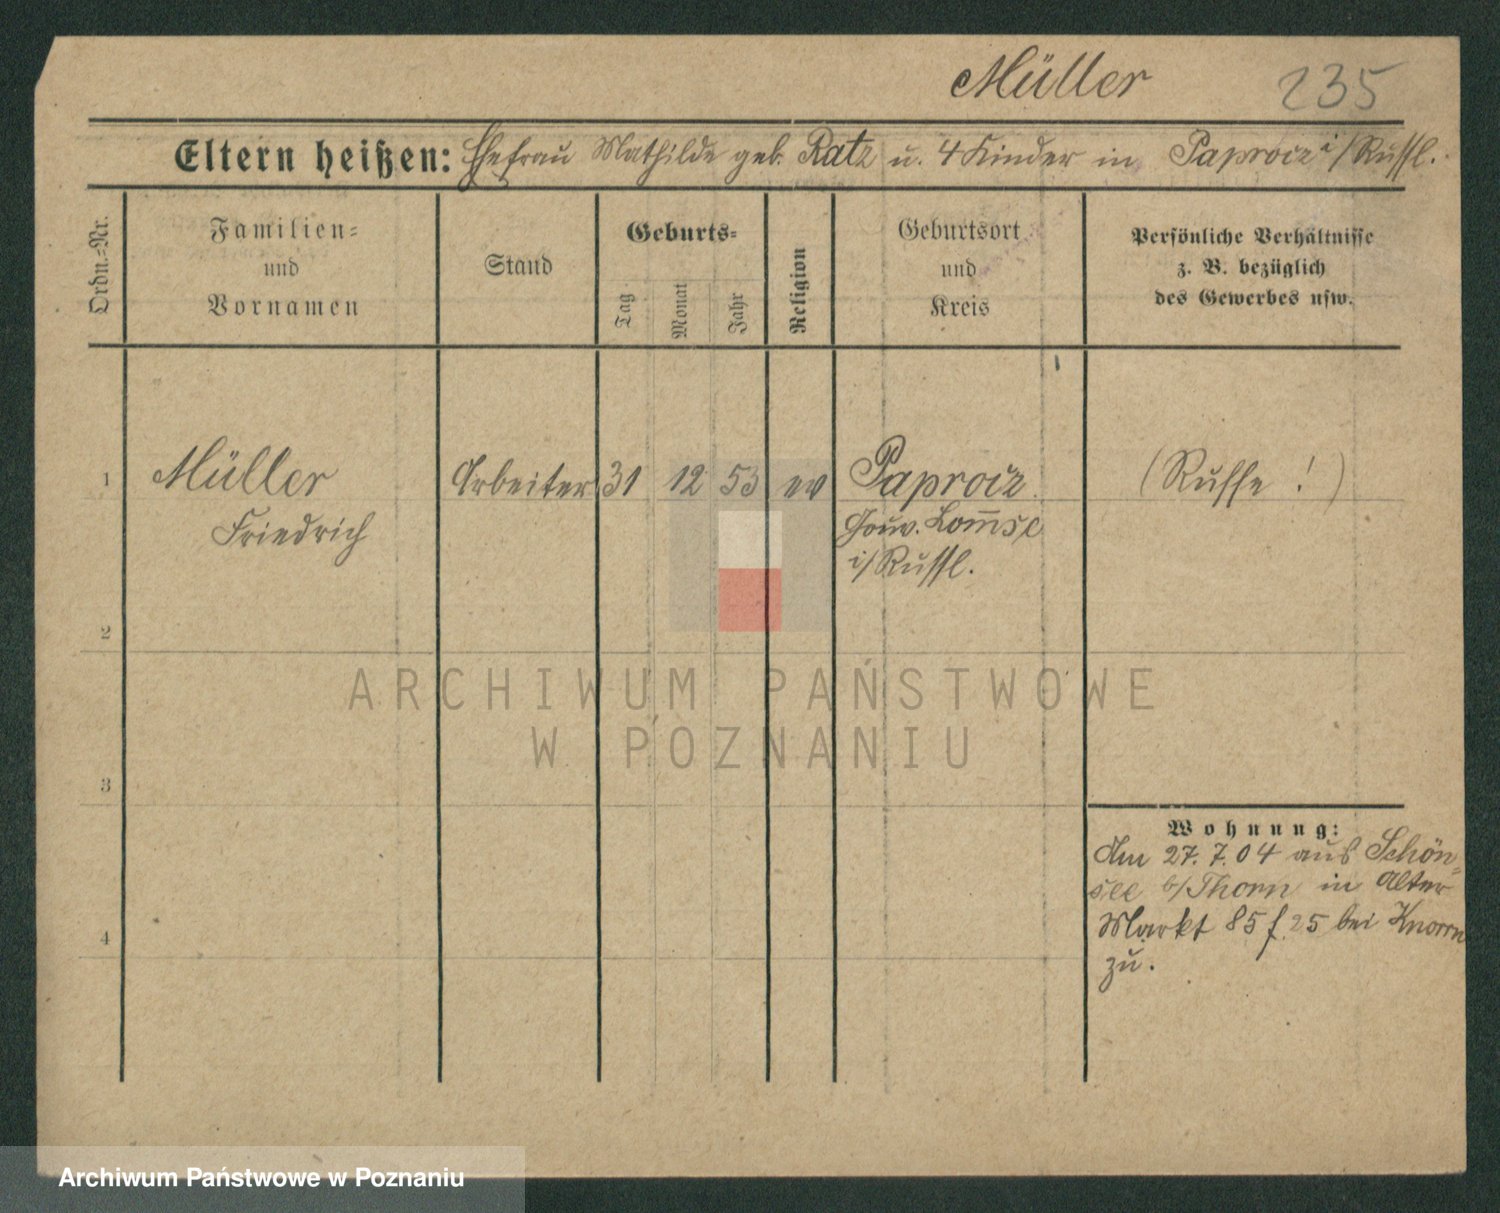 Müller 235
Eltern heißen: Ehefrau Mathilde geb. Ratz u. 4 Kinder in Paprocz i/Russl.
Ordn.-Nr.
Familien-
und
Vornamen
Stand
Geburts-
Tag
Monat
Jahr
Religion
Geburtsort
und
Kreis
Persönliche Verhältnisse
z. B. bezüglich
des Gewerbes usw.
1 Müller Arbeiter 31 12 53 ev Paprocz (Russe!)
Friedrich Gouv. Lom̅se
i/Russl.
2
ARCHIWUM PAŃSTWOWE
W POZNANIU
3
Wohnung:
Am 27.7.04 aus Schön-
see b/Thorn in Alter
4 Markt 85 f. 25 bei Knorrn
zu.
Archiwum Państwowe w Poznaniu